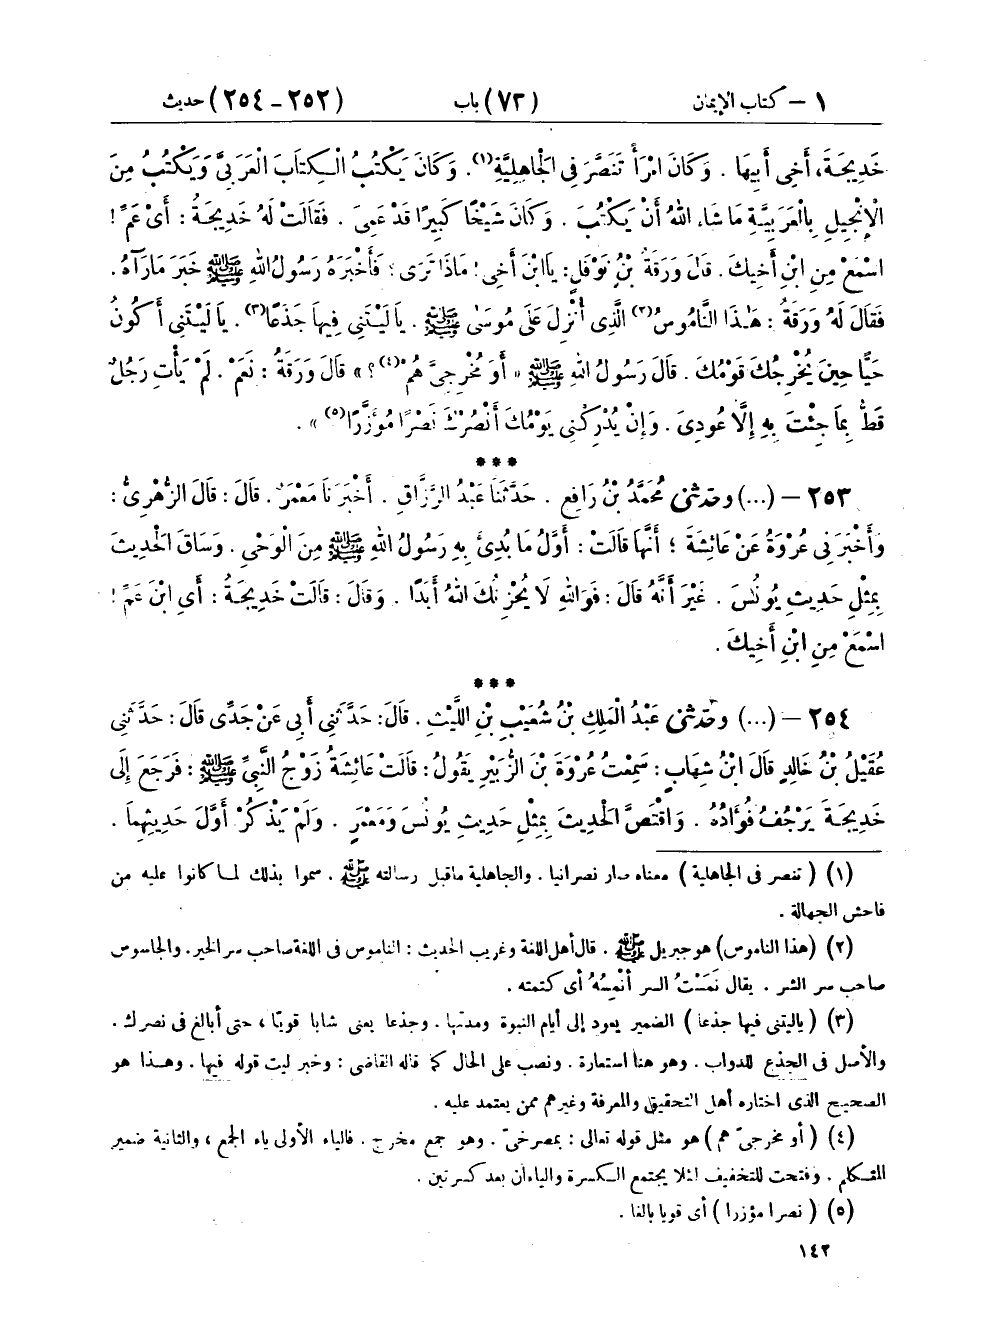 ١ – كتاب الإيمان (٧٣) باب (٢٥٢ – ٢٥٤) حديث
خَدِيجَةَ، أَخِى أَبِيهَا . وَكَانَ امْرَأً تَنَصَّرَ فِى الْجَاهِلِيَّةِ(١). وَكَانَ يَكْتُبُ الْكِتَابَ الْعَرَبِىَّ وَيَكْتُبُ مِنَ
الْإِنْجِيلِ بِالْعَرَبِيَّةِ مَا شَاءَ اللهُ أَنْ يَكْتُبَ . وَكَانَ شَيْخًا كَبِيرًا قَدْ عَمِىَ . فَقَالَتْ لَهُ خَدِيجَةُ : أَىْ عَمِّ !
اسْمَعْ مِنِ ابْنِ أَخِيكَ . قَالَ وَرَقَةُ بْنُ نَوْفَلٍ: يَاابْنَ أَخِى! مَاذَا تَرَى ؟ فَأَخْبَرَهُ رَسُولُ اللهِ ﷺ خَبَرَ مَا رَآهُ .
فَقَالَ لَهُ وَرَقَةُ : هَٰذَا النَّامُوسُ(٢) الَّذِى أُنْزِلَ عَلَى مُوسَىٰ ﷺ . يَا لَيْتَنِى فِيهَا جَذَعًا(٣) . يَا لَيْتَنِى أَكُونُ
حَيًّا حِينَ يُخْرِجُكَ قَوْمُكَ . قَالَ رَسُولُ اللهِ ﷺ « أَوَ مُخْرِجِىَّ هُمْ(٤)؟ » قَالَ وَرَقَةُ : نَعَمْ . لَمْ يَأْتِ رَجُلٌ
قَطُّ بِمَا جِئْتَ بِهِ إِلَّا عُودِىَ . وَإِنْ يُدْرِكْنِى يَوْمُكَ أَنْصُرْكَ نَصْرًا مُؤَزَّرًا(٥) » .
***
٢٥٣ – (...) وحَدَّثَنِى مُحَمَّدُ بْنُ رَافِعٍ . حَدَّثَنَا عَبْدُ الرَّزَّاقِ . أَخْبَرَنَا مَعْمَرٌ . قَالَ : قَالَ الزُّهْرِىُّ :
وَأَخْبَرَنِى عُرْوَةُ عَنْ عَائِشَةَ ؛ أَنَّهَا قَالَتْ : أَوَّلُ مَا بُدِئَ بِهِ رَسُولُ اللهِ ﷺ مِنَ الْوَحْىِ . وَسَاقَ الْحَدِيثَ
بِمِثْلِ حَدِيثِ يُونُسَ . غَيْرَ أَنَّهُ قَالَ : فَوَاللهِ لَا يُحْزِنُكَ اللهُ أَبَدًا . وَقَالَ : قَالَتْ خَدِيجَةُ : أَىِ ابْنَ عَمِّ !
اسْمَعْ مِنِ ابْنِ أَخِيكَ .
***
٢٥٤ – (...) وحَدَّثَنِى عَبْدُ الْمَلِكِ بْنُ شُعَيْبِ بْنِ اللَّيْثِ . قَالَ: حَدَّثَنِى أَبِى عَنْ جَدِّى قَالَ : حَدَّثَنِى
عُقَيْلُ بْنُ خَالِدٍ قَالَ ابْنُ شِهَابٍ : سَمِعْتُ عُرْوَةَ بْنَ الزُّبَيْرِ يَقُولُ : قَالَتْ عَائِشَةُ زَوْجُ النَّبِىِّ ﷺ : فَرَجَعَ إِلَى
خَدِيجَةَ يَرْجُفُ فُؤَادُهُ . وَاقْتَصَّ الْحَدِيثَ بِمِثْلِ حَدِيثِ يُونُسَ وَمَعْمَرٍ . وَلَمْ يَذْكُرْ أَوَّلَ حَدِيثِهِمَا .
(١) ( تنصر فى الجاهلية ) معناه صار نصرانيا . والجاهلية ماقبل رسالته ﷺ . سموا بذلك لما كانوا عليه من
فاحش الجهالة .
(٢) (هذا الناموس) هو جبريل ﷺ . قال أهل اللغة وغريب الحديث : الناموس فى اللغة صاحب سر الخير. والجاسوس
صاحب سر الشر . يقال نَمَسْتُ السر أنْمِسُهُ أى كتمته .
(٣) (ياليتنى فيها جذعا) الضمير يعود إلى أيام النبوة ومدتها . وجذعا يعنى شابا قويًا ، حتى أبالغ فى نصرك .
والأصل فى الجذع للدواب . وهو هنا استعارة . ونصب على الحال كما قاله القاضى : وخبر ليت قوله فيها . وهذا هو
الصحيح الذى اختاره أهل التحقيق والمعرفة وغيرهم ممن يعتمد عليه .
(٤) ( أو مخرجىّ هم ) هو مثل قوله تعالى : بمصرخىّ . وهو جمع مخرج . فالياء الأولى ياء الجمع ، والثانية ضمير
المتكلم . وفتحت للتخفيف لئلا يجتمع الكسرة والياءان بعد كسرتين .
(٥) ( نصرا مؤزرا ) أى قويا بالغا .
١٤٢